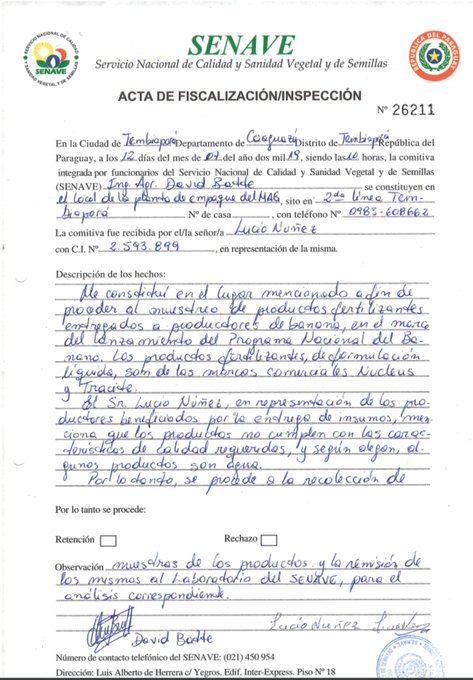 SERVICIO NACIONAL DE CALIDAD
Y SANIDAD VEGETAL Y DE SEMILLAS
SENAVE
SENAVE
Servicio Nacional de Calidad y Sanidad Vegetal y de Semillas
REPUBLICA DEL PARAGUAY
ACTA DE FISCALIZACIÓN/INSPECCIÓN
Nº 26211
En la Ciudad de Tembiaporá Departamento de Caaguazú Distrito de Tembiaporá República del
Paraguay, a los 12 días del mes de 07 del año dos mil 19, siendo las 10 horas, la comitiva
integrada por funcionarios del Servicio Nacional de Calidad y Sanidad Vegetal y de Semillas
(SENAVE) Ing. Agr. David Bodde se constituyen en
el local de la planta de empaque del MAG, sito en 2da línea Tem-
biaporá Nº de casa , con teléfono Nº 0983-608662
La comitiva fue recibida por el/la señor/a Lucio Nuñez
con C.I. Nº 2.593.899, en representación de la misma.
Descripción de los hechos:
Me constituí en el lugar mencionado a fin de
proceder al muestreo de productos fertilizantes
entregados a productores de banana, en el marco
del lanzamiento del Programa Nacional del Ba-
nano. Los productos fertilizantes, de formulación
líquida, son de las marcas comerciales Nucleus
y Tracite.
El Sr. Lucio Núñez, en representación de los pro-
ductores beneficiados por la entrega de insumos, men-
ciona que los productos no cumplen con las carac-
terísticas de calidad requeridas, y según alegan, al-
gunos productos son agua.
Por lo tanto, se procede a la recolección de
Por lo tanto se procede:
Retención Rechazo
Observación muestras de los productos y la remisión de
los mismos al Laboratorio del SENAVE, para el
análisis correspondiente.
David Bodde
Lucio Nuñez
Número de contacto telefónico del SENAVE: (021) 450 954
Dirección: Luis Alberto de Herrera c/ Yegros. Edif. Inter-Express. Piso Nº 18